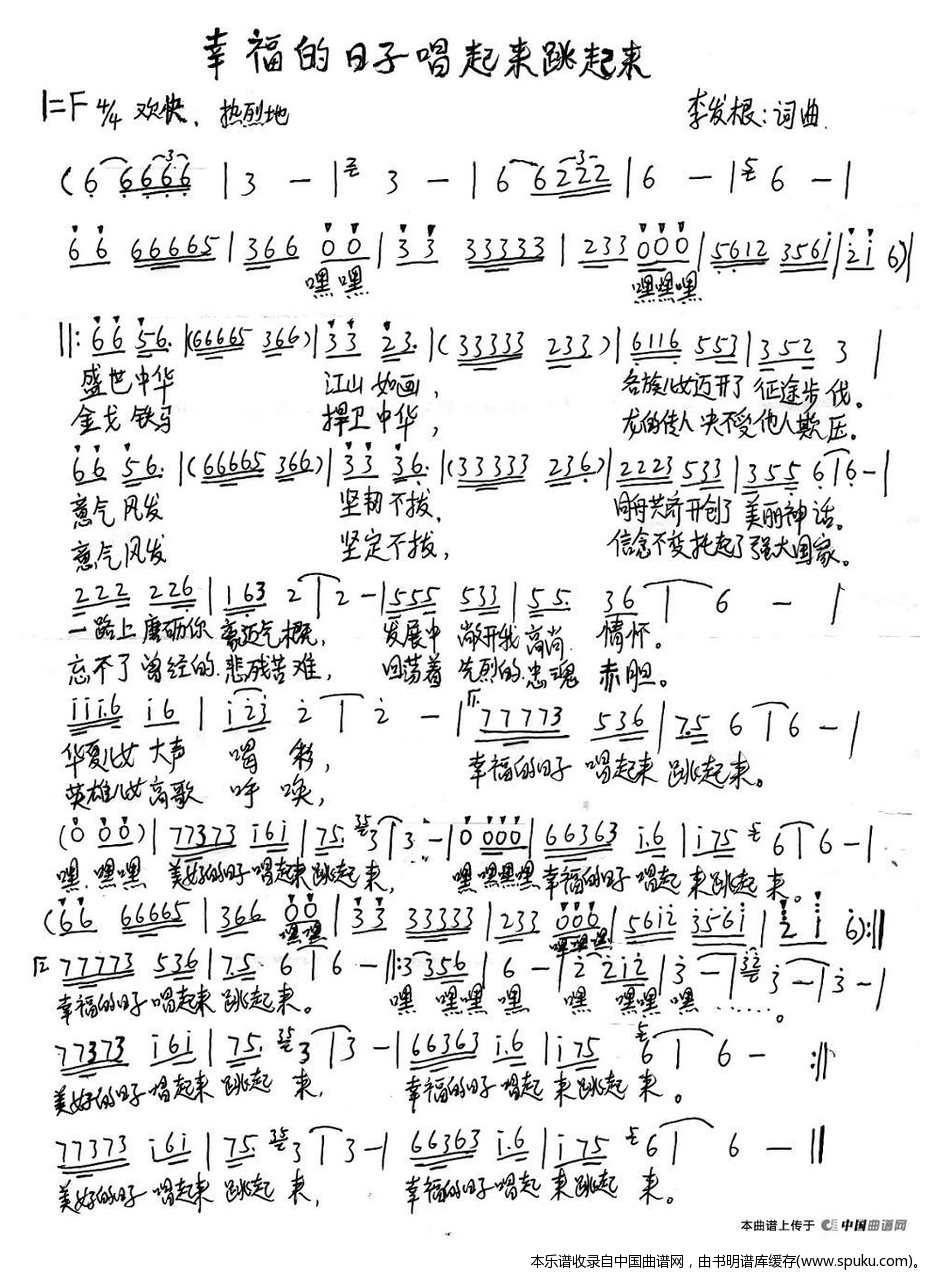 幸福的日子唱起来跳起来
1=F 4/4 欢快、热烈地 李发根:词曲
(6 6666 | 3 - | 3 - | 6 6222 | 6 - | 6 - |
66 66665 | 366 00 | 33 33333 | 233 000 | 5612 3561 | 21 6) |
嘿嘿 嘿嘿嘿
||: 66 56. | (66665 366) | 33 23. | (33333 233) | 6116 553 | 352 3 |
盛世中华 江山如画, 各族儿女迈开了 征途步伐。
金戈铁马 捍卫中华, 龙的传人决不受他人欺压。
66 56. | (66665 366) | 33 36. | (33333 236) | 2223 533 | 355 6 | 6 - |
意气风发 坚韧不拔, 同舟共济开创了 美丽神话。
意气风发 坚定不拔, 信念不变托起了强大国家。
222 226 | 163 2 | 2 - | 555 533 | 55. 36 | 6 - |
一路上磨砺你豪迈气概, 发展中 敞开我高尚 情怀。
忘不了曾经的悲残苦难, 回荡着 先烈的忠魂 赤胆。
111.6 16 | 123 2 | 2 - | 77773 536 | 7.5 6 | 6 - |
华夏儿女 大声 喝 彩, 幸福的日子 唱起来 跳起来。
英雄儿女高歌 呼 唤,
(0 00) | 77373 161 | 75. 35 3 | 3 - | 0 000 | 66363 1.6 | 175 5 6 | 6 - |
嘿 嘿嘿 美好的日子唱起来跳起来, 嘿嘿嘿嘿幸福的日子唱起来跳起来。
(66 66665 | 366 00 | 33 33333 | 233 000 | 5612 3561 | 21 6) :||
嘿嘿 嘿嘿嘿
77773 536 | 7.5. 6 | 6 - ||: 3 356 | 6 - | 2 212 | 3 - | 32 3 - | 3 - |
幸福的日子唱起来 跳起来。 嘿 嘿嘿 嘿 嘿 嘿嘿 嘿 …… 。
77373 161 | 75. 35 3 | 3 - | 66363 1.6 | 175 5 6 | 6 - :||
美好的日子唱起来 跳起 来, 幸福的日子唱起 来跳起 来。
77373 161 | 75. 35 3 | 3 - | 66363 1.6 | 175 5 6 | 6 - ||
美好的日子唱起来 跳起 来, 幸福的日子唱起 来跳起 来。
本曲谱上传于 中国曲谱网
本乐谱收录自中国曲谱网,由书明谱库缓存(www.spuku.com)。